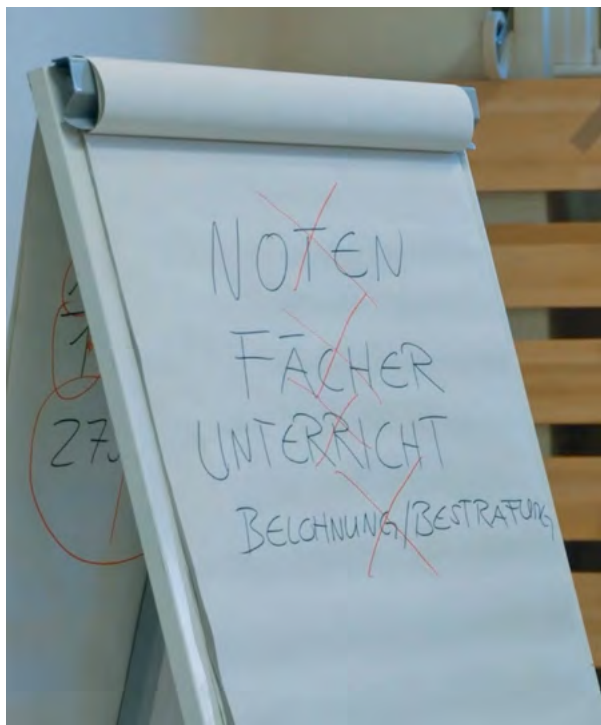 NOTEN
FÄCHER
UNTERRICHT
BELOHNUNG/BESTRAFUNG
27